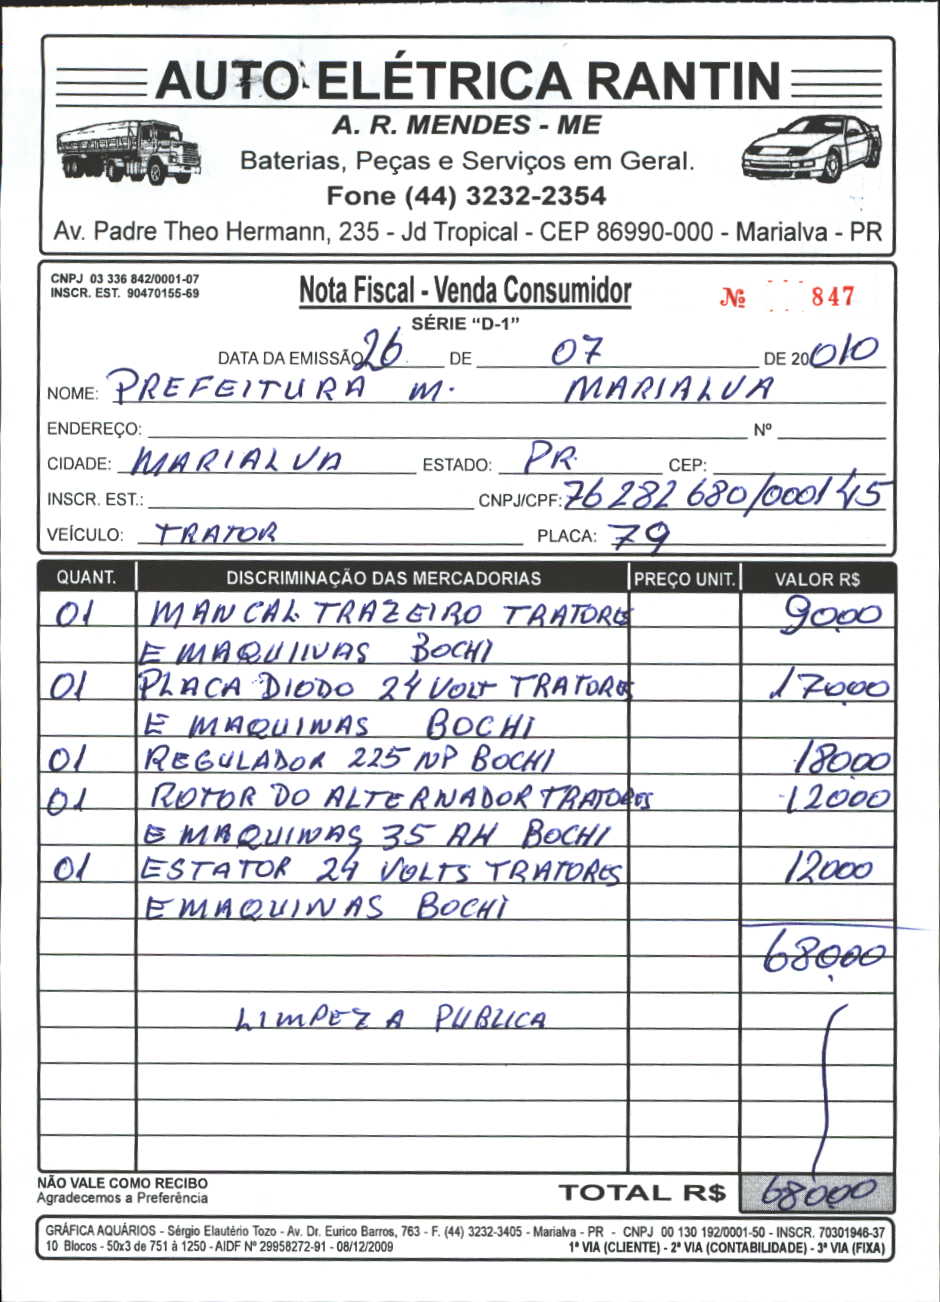 AUTO ELÉTRICA RANTIN
A. R. MENDES - ME
Baterias, Peças e Serviços em Geral.
Fone (44) 3232-2354
Av. Padre Theo Hermann, 235 - Jd Tropical - CEP 86990-000 - Marialva - PR
CNPJ 03 336 842/0001-07
INSCR. EST. 90470155-69
Nota Fiscal - Venda Consumidor
Nº 847
SÉRIE “D-1”
DATA DA EMISSÃO 26 DE 07 DE 20 010
NOME: PREFEITURA M. MARIALVA
ENDEREÇO: Nº
CIDADE: MARIALVA ESTADO: PR. CEP:
INSCR. EST.: CNPJ/CPF: 76 282 680/0001 45
VEÍCULO: TRATOR PLACA: 79
QUANT. DISCRIMINAÇÃO DAS MERCADORIAS PREÇO UNIT. VALOR R$
01 MANCAL TRAZEIRO TRATORES 90,00
E MAQUINAS BOCHI
01 PLACA DIODO 24 VOLT TRATORES 170,00
E MAQUINAS BOCHI
01 REGULADOR 225 NP BOCHI 180,00
01 ROTOR DO ALTERNADOR TRATORES 120,00
E MAQUINAS 35 AH BOCHI
01 ESTATOR 24 VOLTS TRATORES 120,00
E MAQUINAS BOCHI
680,00
LIMPEZA PUBLICA
NÃO VALE COMO RECIBO
Agradecemos a Preferência
TOTAL R$ 680,00
GRÁFICA AQUÁRIOS - Sérgio Elautério Tozo - Av. Dr. Eurico Barros, 763 - F. (44) 3232-3405 - Marialva - PR - CNPJ 00 130 192/0001-50 - INSCR. 70301946-37
10 Blocos - 50x3 de 751 à 1250 - AIDF Nº 29958272-91 - 08/12/2009 1ª VIA (CLIENTE) - 2ª VIA (CONTABILIDADE) - 3ª VIA (FIXA)